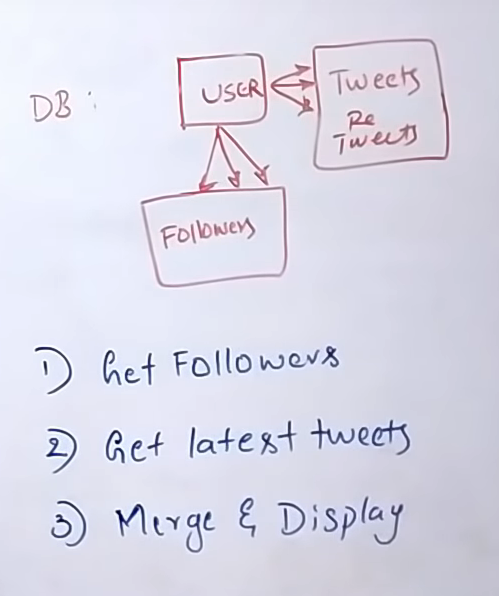 DB :
USER
Tweets
Re
Tweets
Followers
1) Get Followers
2) Get latest tweets
3) Merge & Display